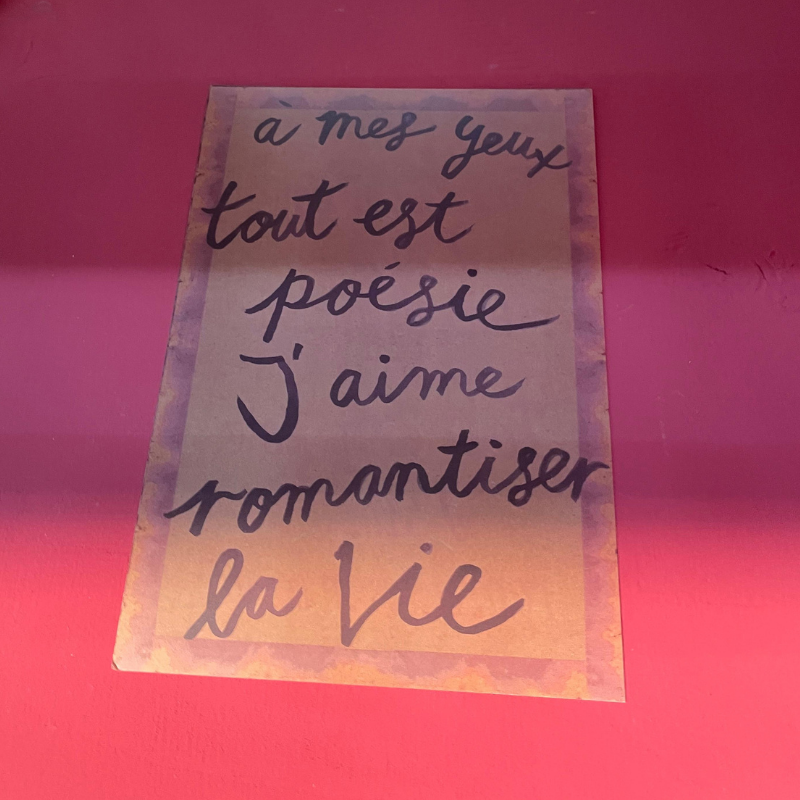 à mes yeux
tout est
poésie
J'aime
romantiser
la Vie